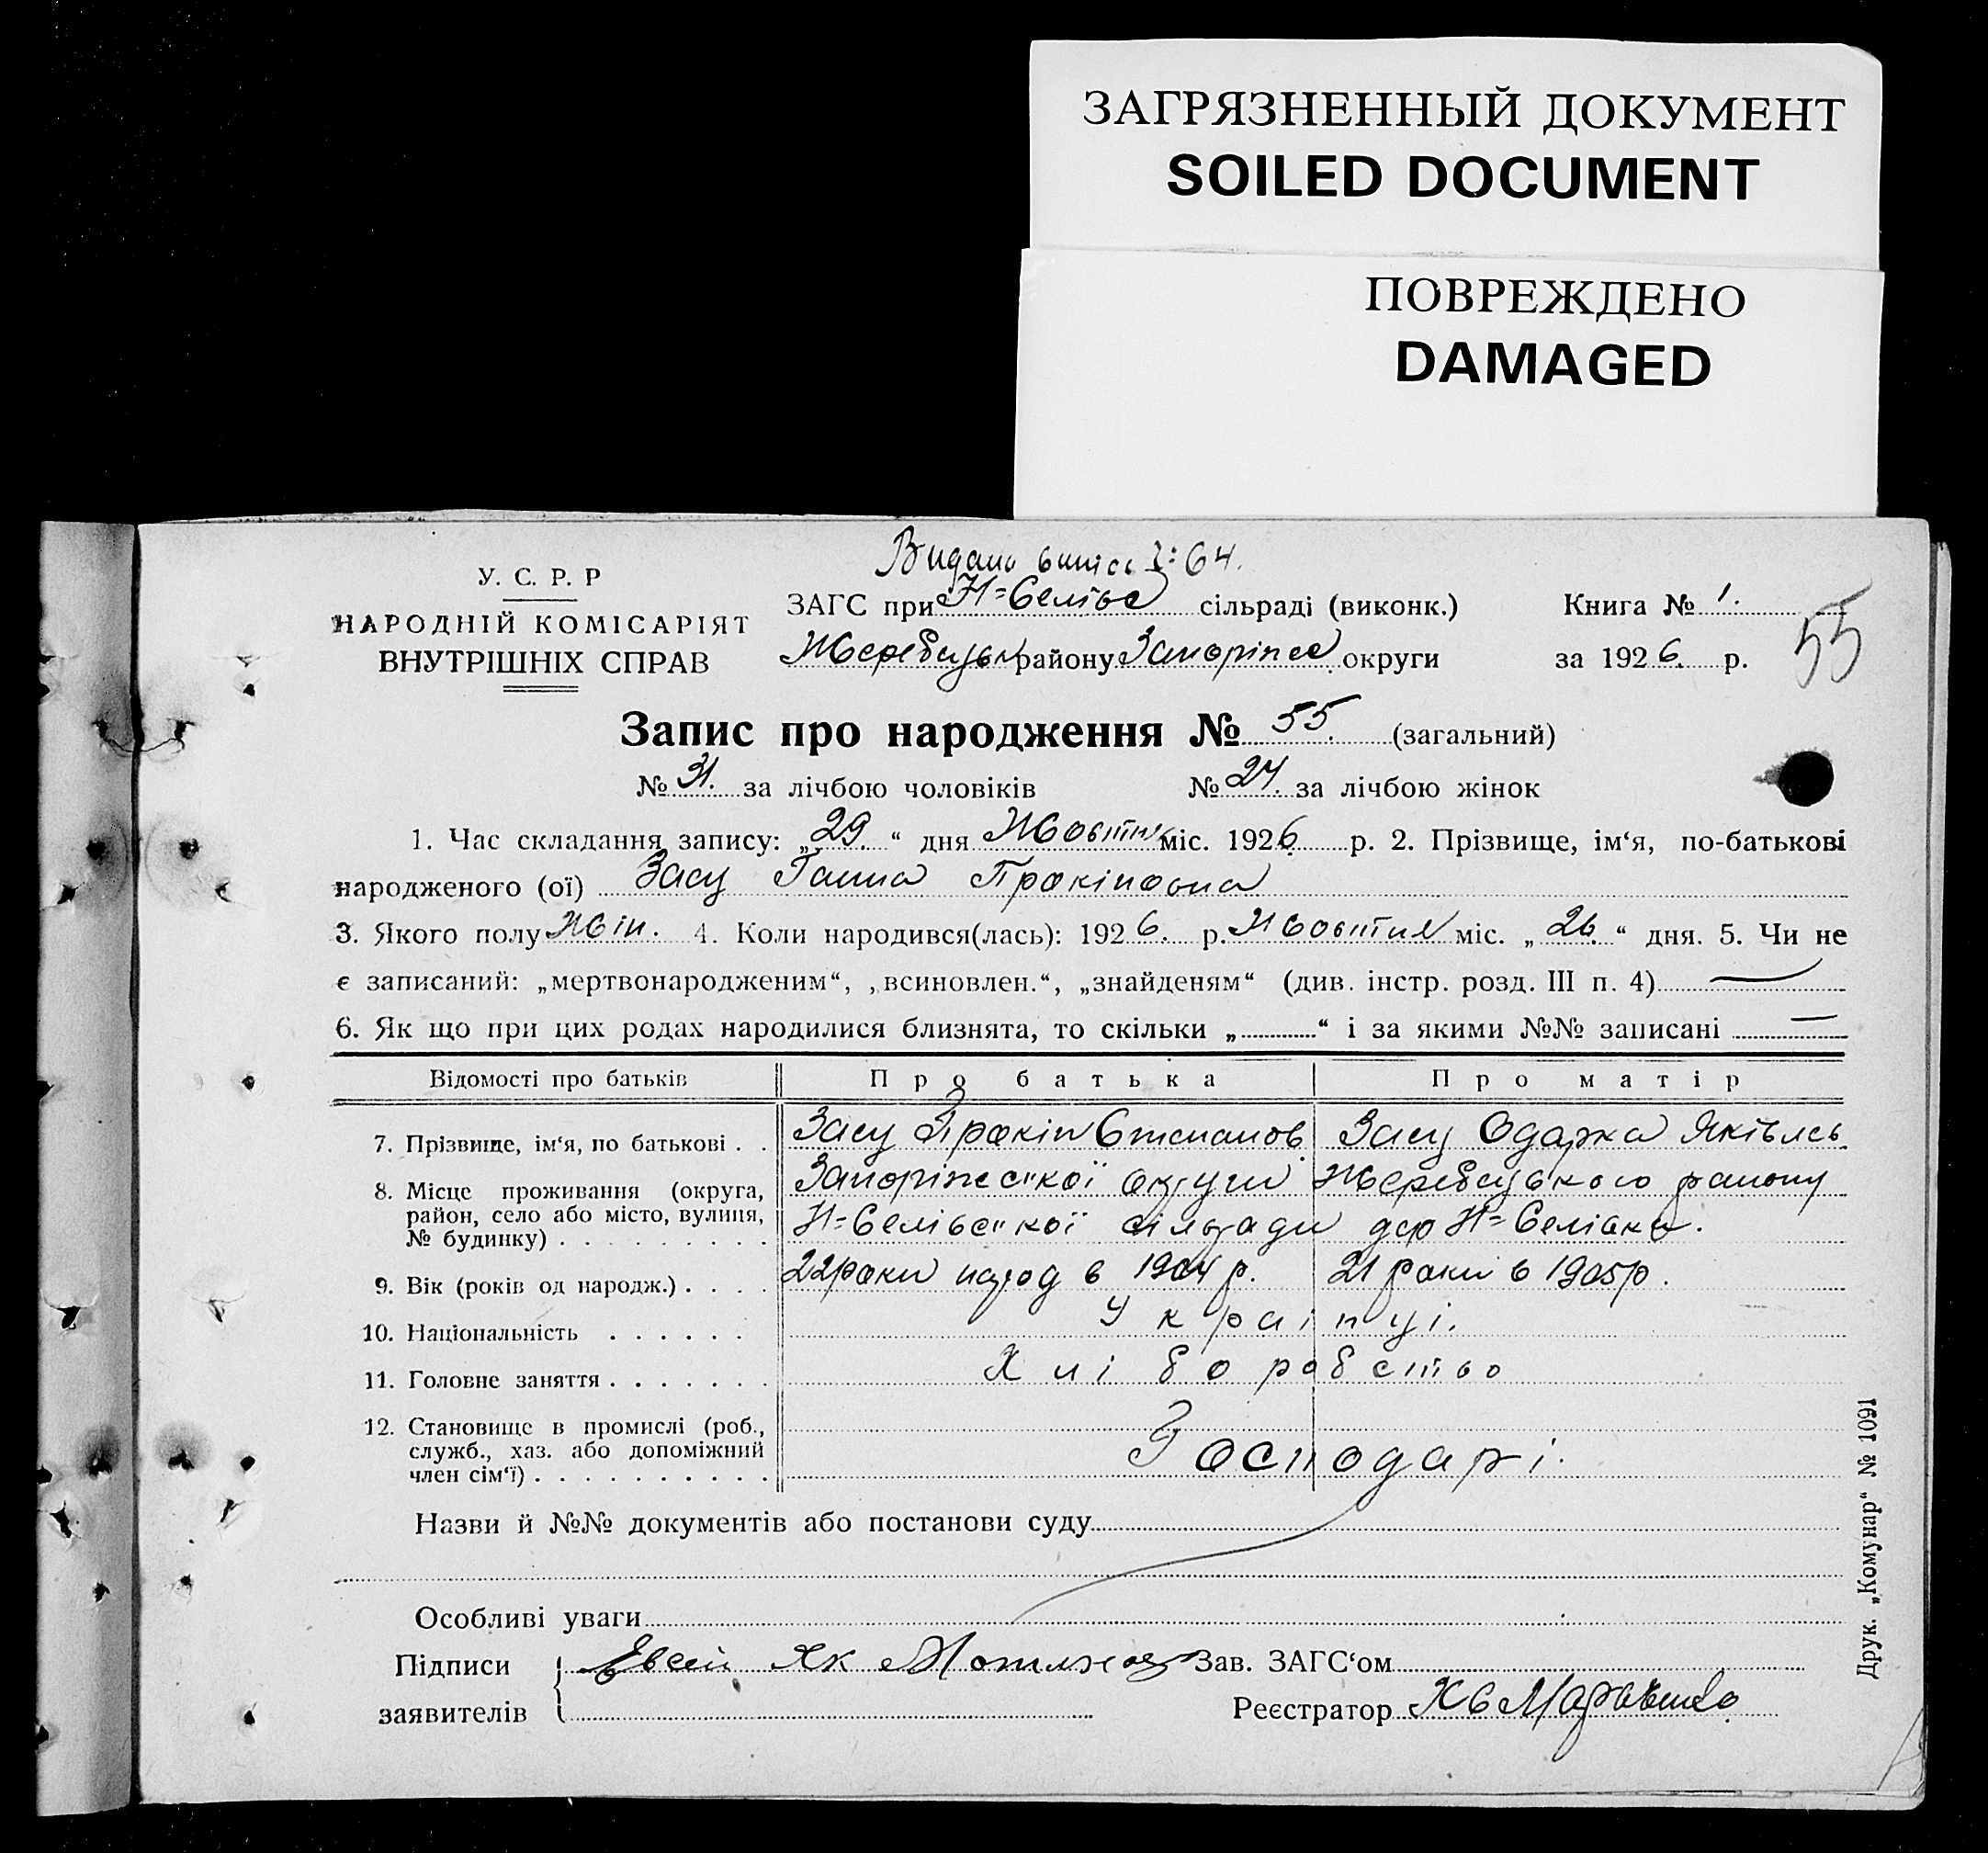 ЗАГРЯЗНЕННЫЙ ДОКУМЕНТ
SOILED DOCUMENT
ПОВРЕЖДЕНО
DAMAGED
Видано
64.
У. С. Р. Р
НАРОДНІЙ КОМІСАРІЯТ
ВНУТРІШНІХ СПРАВ
ЗАГС при Н=Селівс сільраді (виконк.)
Книга № 1.
Жеребецьк району Запоріжс округи
за 1926. р.
55
Запис про народження № 55. (загальний)
№ 31. за лічбою чоловіків № 24. за лічбою жінок
1. Час складання запису: „29.“ дня Жовтня міс. 1926 р. 2. Прізвище, ім‘я, по-батькові
народженого (ої) Засу Ганна Прокіповна
3. Якого полу Жін. 4. Коли народився(лась): 1926. р. Жовтня міс. „26.“ дня. 5. Чи не
є записаний: „мертвонародженим“, „всиновлен.“, „знайденям“ (див. інстр. розд. III п. 4) —
6. Як що при цих родах народилися близнята, то скільки „..........“ і за якими №№ записані —
Відомості про батьків Про батька Про матір
7. Прізвище, ім‘я, по батькові . . Засу Прокіп Степанов. Засу Одарка Яківлев
8. Місце проживання (округа, Запоріжс"кої округи Жеребецького району
район, село або місто, вулиця, Н=Селівс"кої сільради дер Н=Селівка.
№ будинку) . . . . . . . . .
9. Вік (років од народж.) . . . . 22 роки народ в 1904 р. 21 роки в 1905 р.
10. Національність . . . . . . Українці.
11. Головне заняття . . . . . . . Хліборобство
12. Становище в промислі (роб.,
служб., хаз. або допоміжний Господарі.
член сім‘ї) . . . . . . . . . .
Назви й №№ документів або постанови суду
Особливі уваги
Підписи Евсей Як Зав. ЗАГС‘ом
заявителів Реєстратор
Друк. „Комунар“ № 1091